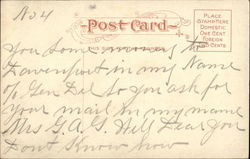 No 4
Post Card
PLACE
STAMP HERE
DOMESTIC
ONE CENT
FOREIGN
TWO CENTS
THIS SIDE
you some morning to
Davenport in my Name
Gen Del so you ask for
your mail in my name
Mrs G. A. S. Will Dear you
dont Know how